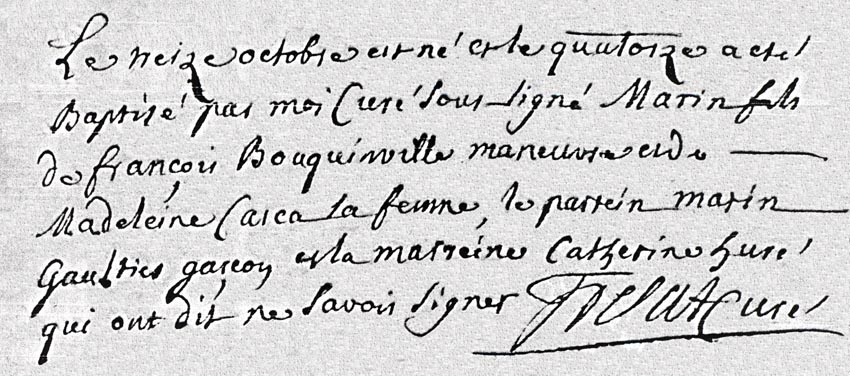 Le treize octobre est né et le quatorze a eté
Baptisé par moi Curé sous-signé Marin fils
de françois Bouquinville maneuvre et de
Madeleine Casca sa femme, le parrein marin
Gaultier garçon et la marreine Catherine huré
qui ont dit ne savoir signer Curé